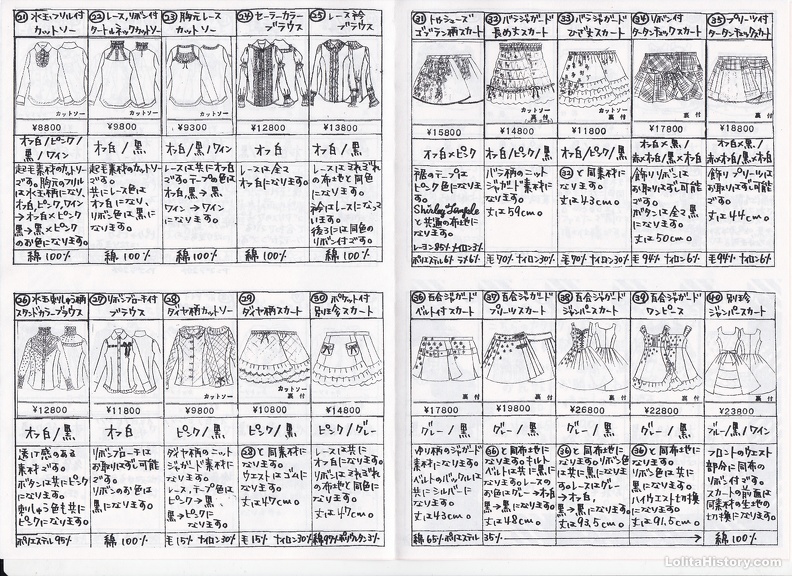 ㉑ 水玉フリル付
カットソー
¥8800
オフ白/ピンク/
黒/ワイン
起毛素材のカットソー
です。胸元のフリル
は水玉柄になり、
オフ白,ピンク,ワイン
→オフ白×ピンク
黒→黒×ピンク
のお色になります。
綿 100%
㉒ レース,リボン付
タートルネックカットソー
カットソー
¥9800
オフ白/黒
起毛素材のカットソー
です。
共にレース色は
オフ白になり、
リボン色は黒に
なります。
綿 100%
㉓ 胸元レース
カットソー
カットソー
¥9300
オフ白/黒/ワイン
レースは共にオフ白
です。テープの色は
オフ白,黒→黒、
ワイン→ワイン
になります。
綿 100%
㉔ セーラーカラー
ブラウス
¥12800
オフ白
レースは全て
オフ白になります。
綿 100%
㉕ レース衿
ブラウス
¥13800
オフ白/黒
レースはそれぞれ
の布地と同色
になります。
衿はレースになって
います。
後ろには同色の
リボン付です。
綿 100%
㉖ 水玉刺しゅう柄
スタンドカラーブラウス
¥12800
オフ白/黒
透け感のある
素材です。
ボタンは共にピンク
になります。
刺しゅう色も共に
ピンクになります。
ポリエステル95%
㉗ リボンブローチ付
ブラウス
¥11800
オフ白
リボンブローチは
お取りはずし可能
です。
リボンのお色は
黒になります。
綿 100%
㉘ ダイヤ柄カットソー
カットソー
¥9800
ピンク/黒
ダイヤ柄のニット
ジャガード素材に
なります。
レース,テープ色は
ピンク→黒、
黒→ピンクに
なります。
毛15% ナイロン30%
㉙ ダイヤ柄スカート
カットソー
¥10800
ピンク/黒
㉘と同素材に
なります。
ウエストはゴムに
なります。
丈は47cm。
毛15% ナイロン30%
㉚ ポケット付
別珍スカート
裏付
¥14800
ピンク/グレー
レースは共に
オフ白になります。
リボンはそれぞれ
の布地と同色に
なります。
丈は47cm。
綿97% ポリウレタン3%
㉛ トゥシューズ
ゴブラン柄スカート
¥15800
オフ白×ピンク
裾のテープは
ピンク色になりま
す。
Shirley Temple
と共通の布地に
なります。
レーヨン85% ナイロン3%
ポリエステル6% ラメ6%
㉜ バラジャガード
長め丈スカート
カットソー
裏付
¥14800
オフ白/ピンク/黒
バラ柄のニット
ジャガード素材に
なります。
丈は59cm。
毛70% ナイロン30%
㉝ バラジャガード
ひざ丈スカート
カットソー
裏付
¥11800
オフ白/ピンク/黒
㉜と同素材に
なります。
丈は43cm。
毛70% ナイロン30%
㉞ リボン付
タータンチェックスカート
裏付
¥17800
オフ白×黒/
赤×オフ白/黒×オフ白
飾りリボンは
お取りはずし可能
です。
ボタンは全て黒
になります。
丈は50cm。
毛94% ナイロン6%
㉟ プリーツ付
タータンチェックスカート
裏付
¥18800
オフ白×黒/
赤×オフ白/黒×オフ白
飾りプリーツは
お取りはずし可能
です。
丈は44cm。
毛94% ナイロン6%
㊱ 百合ジャガード
ベルト付スカート
裏付
¥17800
グレー/黒
ゆり柄のジャガード
素材になります。
ベルトのバックルは
共にシルバーに
なります。
丈は43cm。
綿65% ポリエステル35%
㊲ 百合ジャガード
プリーツスカート
裏付
¥19800
グレー/黒
㊱と同布地に
なります。キルト
ベルトは共に黒に
なります。レースの
お色はグレー→オフ白
黒→黒になります。
丈は48cm。
㊳ 百合ジャガード
ジャンパースカート
裏付
¥26800
グレー/黒
㊱と同布地にな
ります。リボン色
は共に黒になりま
す。レースはグレー
→オフ白、
黒→黒になります。
丈は93,5cm。
㊴ 百合ジャガード
ワンピース
裏付
¥22800
グレー/黒
㊱と同布地に
なります。
リボン色は共に
黒になります。
ハイウエスト切り換え
になります。
丈は91,5cm。
㊵ 別珍
ジャンパースカート
裏付
¥23800
ブルー/黒/ワイン
フロントのウエスト
部分に同布の
リボン付です。
スカートの前面は
同素材の生地の
切り換えになります。
綿 100%
LolitaHistory.com